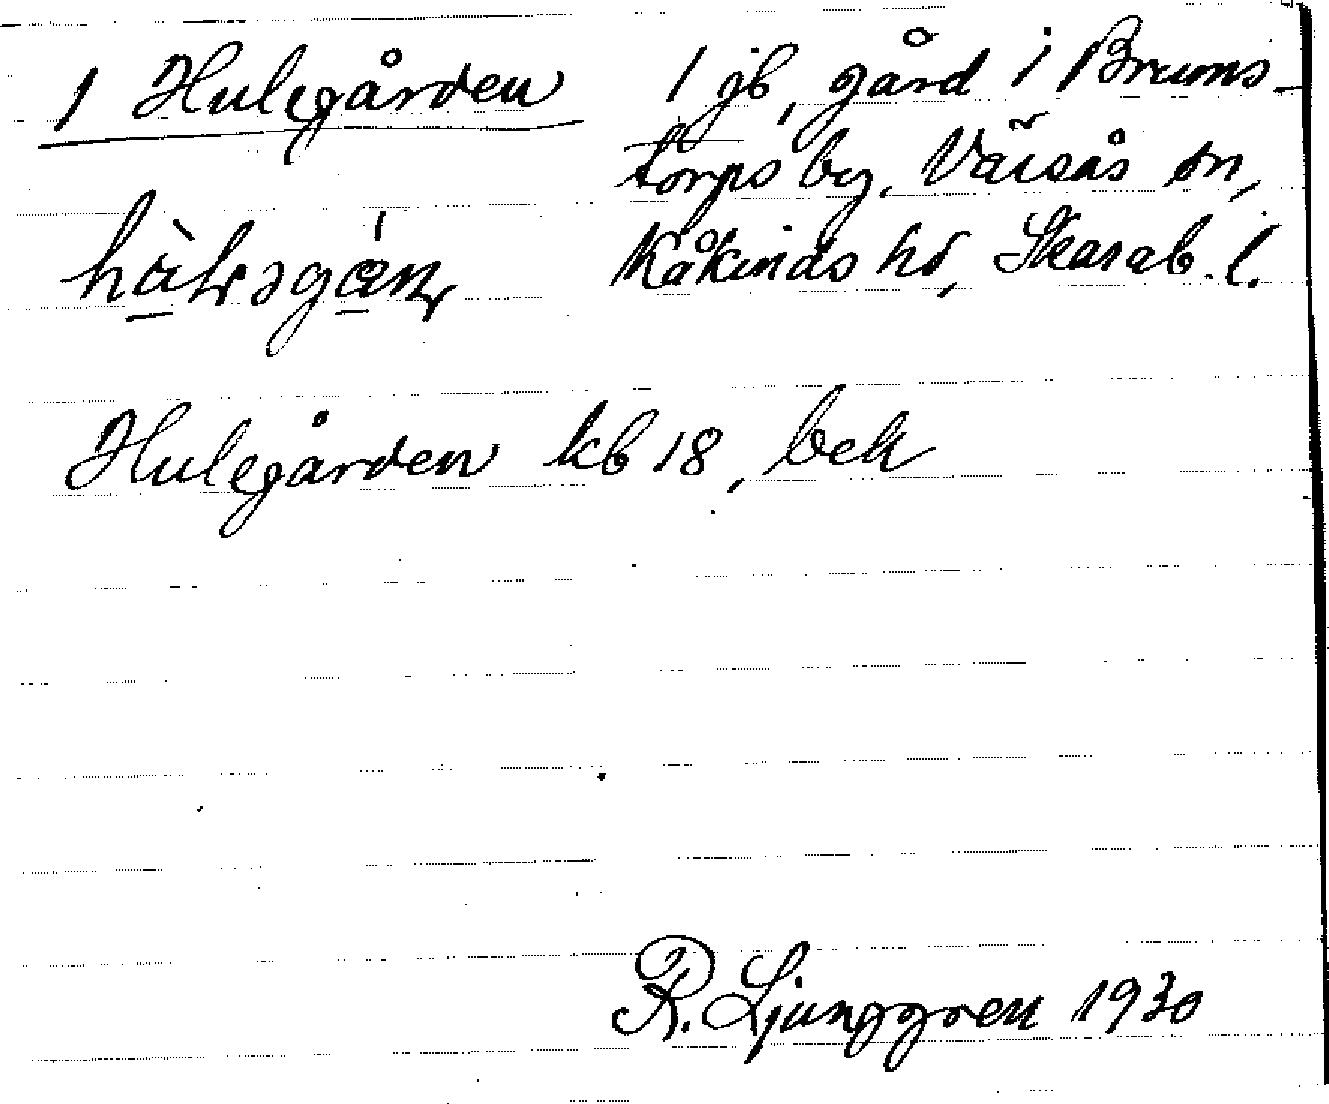 1 Hulegården 1 jb, gård i Brums-
torps by, Värsås sn,
Kåkinds hd, Skarab. l.
Hulegården kb 18, bek
R. Ljunggren 1930